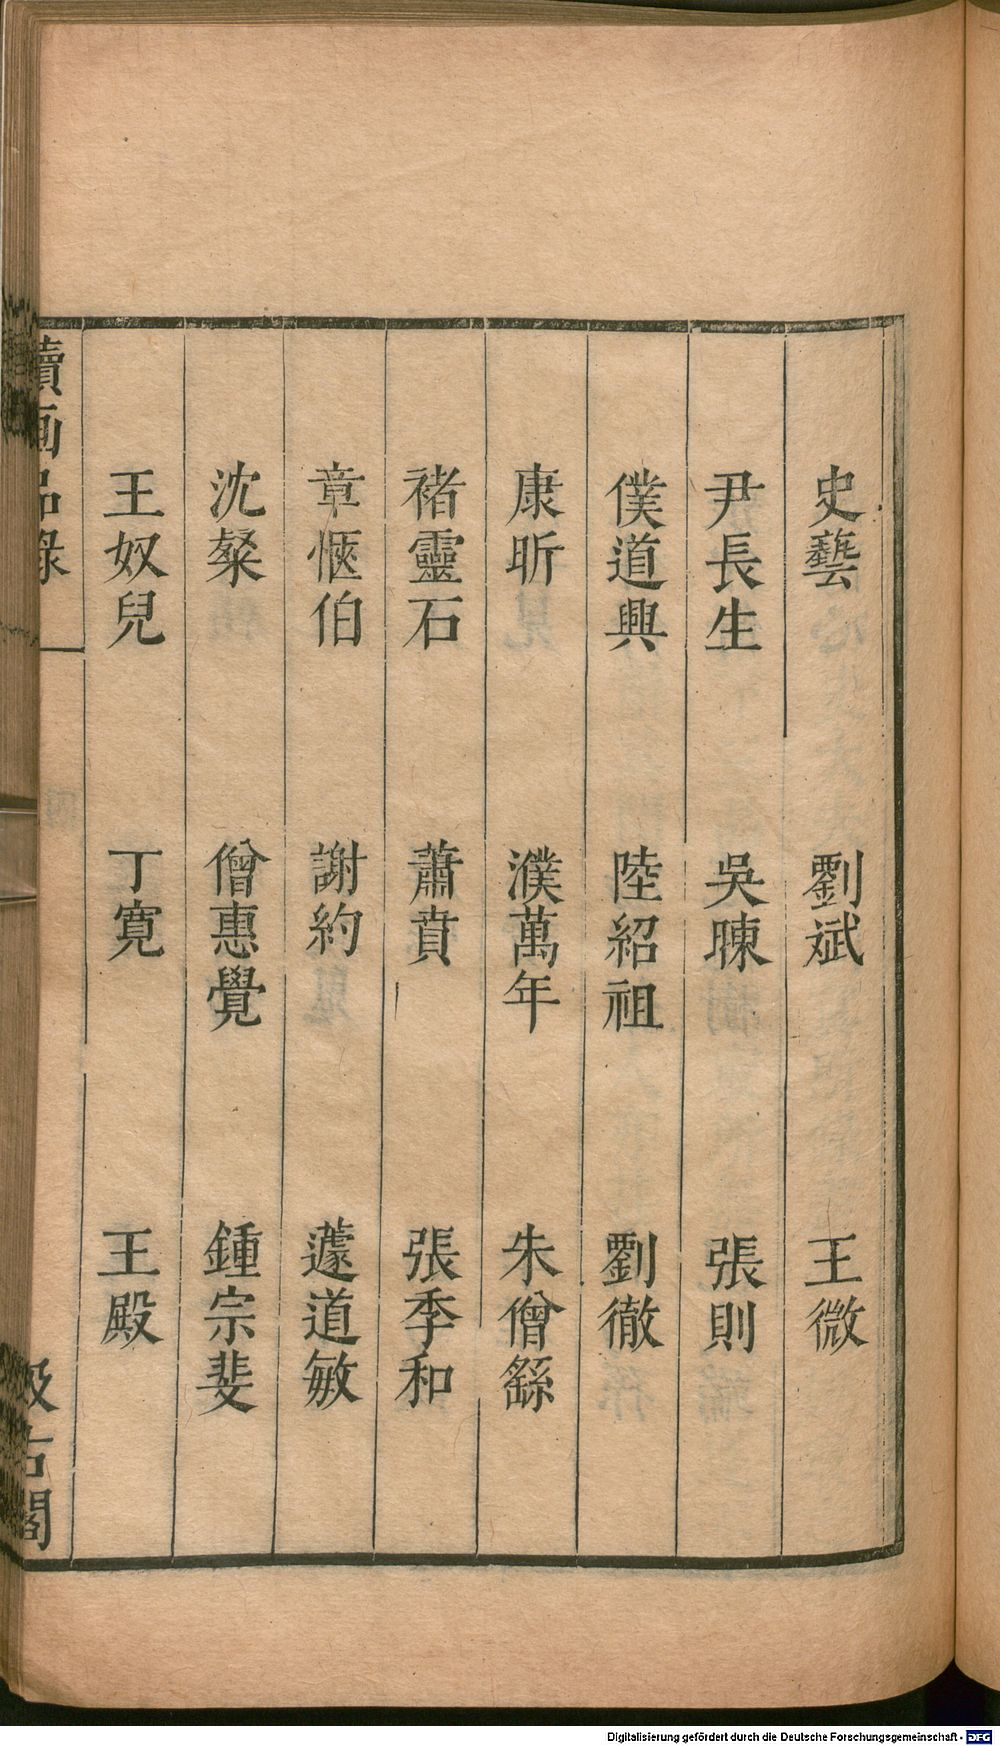 史藝　劉斌　王微
尹長生　吳暕　張則
僕道興　陸紹祖　劉徹
康昕　濮萬年　朱僧繇
褚靈石　蕭賁　張季和
章愜伯　謝約　蘧道敏
沈粲　僧惠覺　鍾宗斐
王奴兒　丁寬　王殿
續画品錄　汲古閣
Digitalisierung gefördert durch die Deutsche Forschungsgemeinschaft - DFG